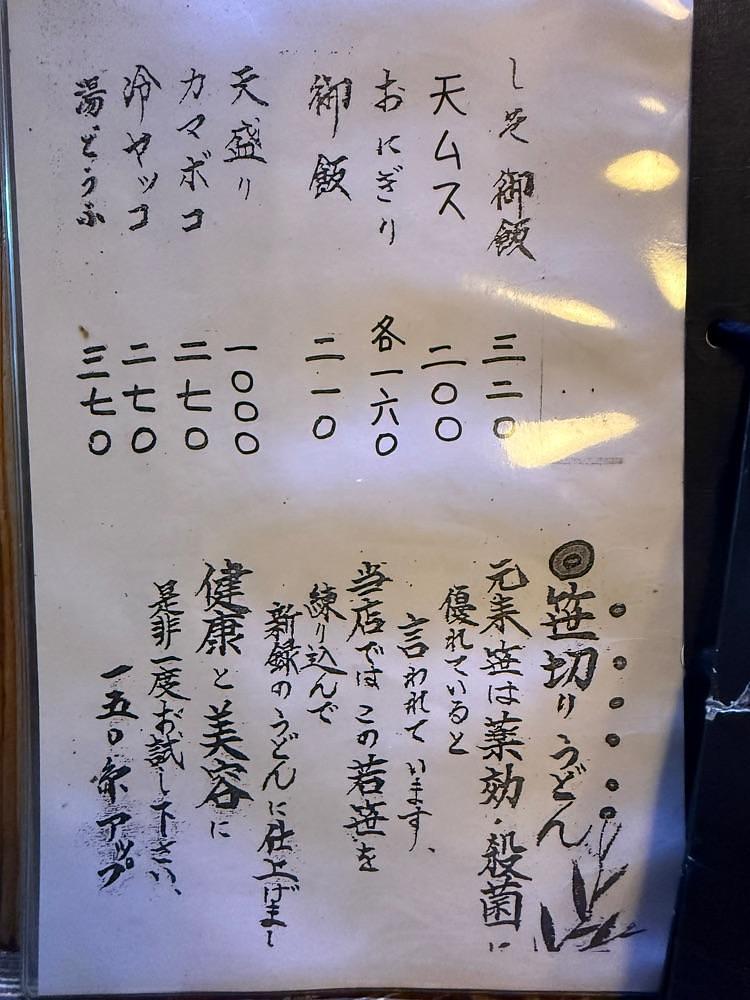 しそ御飯 三二〇
天ムス 二〇〇
おにぎり 各一六〇
御飯 二一〇
天盛り 一〇〇〇
カマボコ 二七〇
冷ヤッコ 二七〇
湯どうふ 三七〇
笹切りうどん
元来笹は薬効・殺菌に
優れていると
言われています、
当店ではこの若笹を
練り込んで
新録のうどんに仕上げまし
健康と美容に
是非一度お試し下さい、
一五〇円アップ